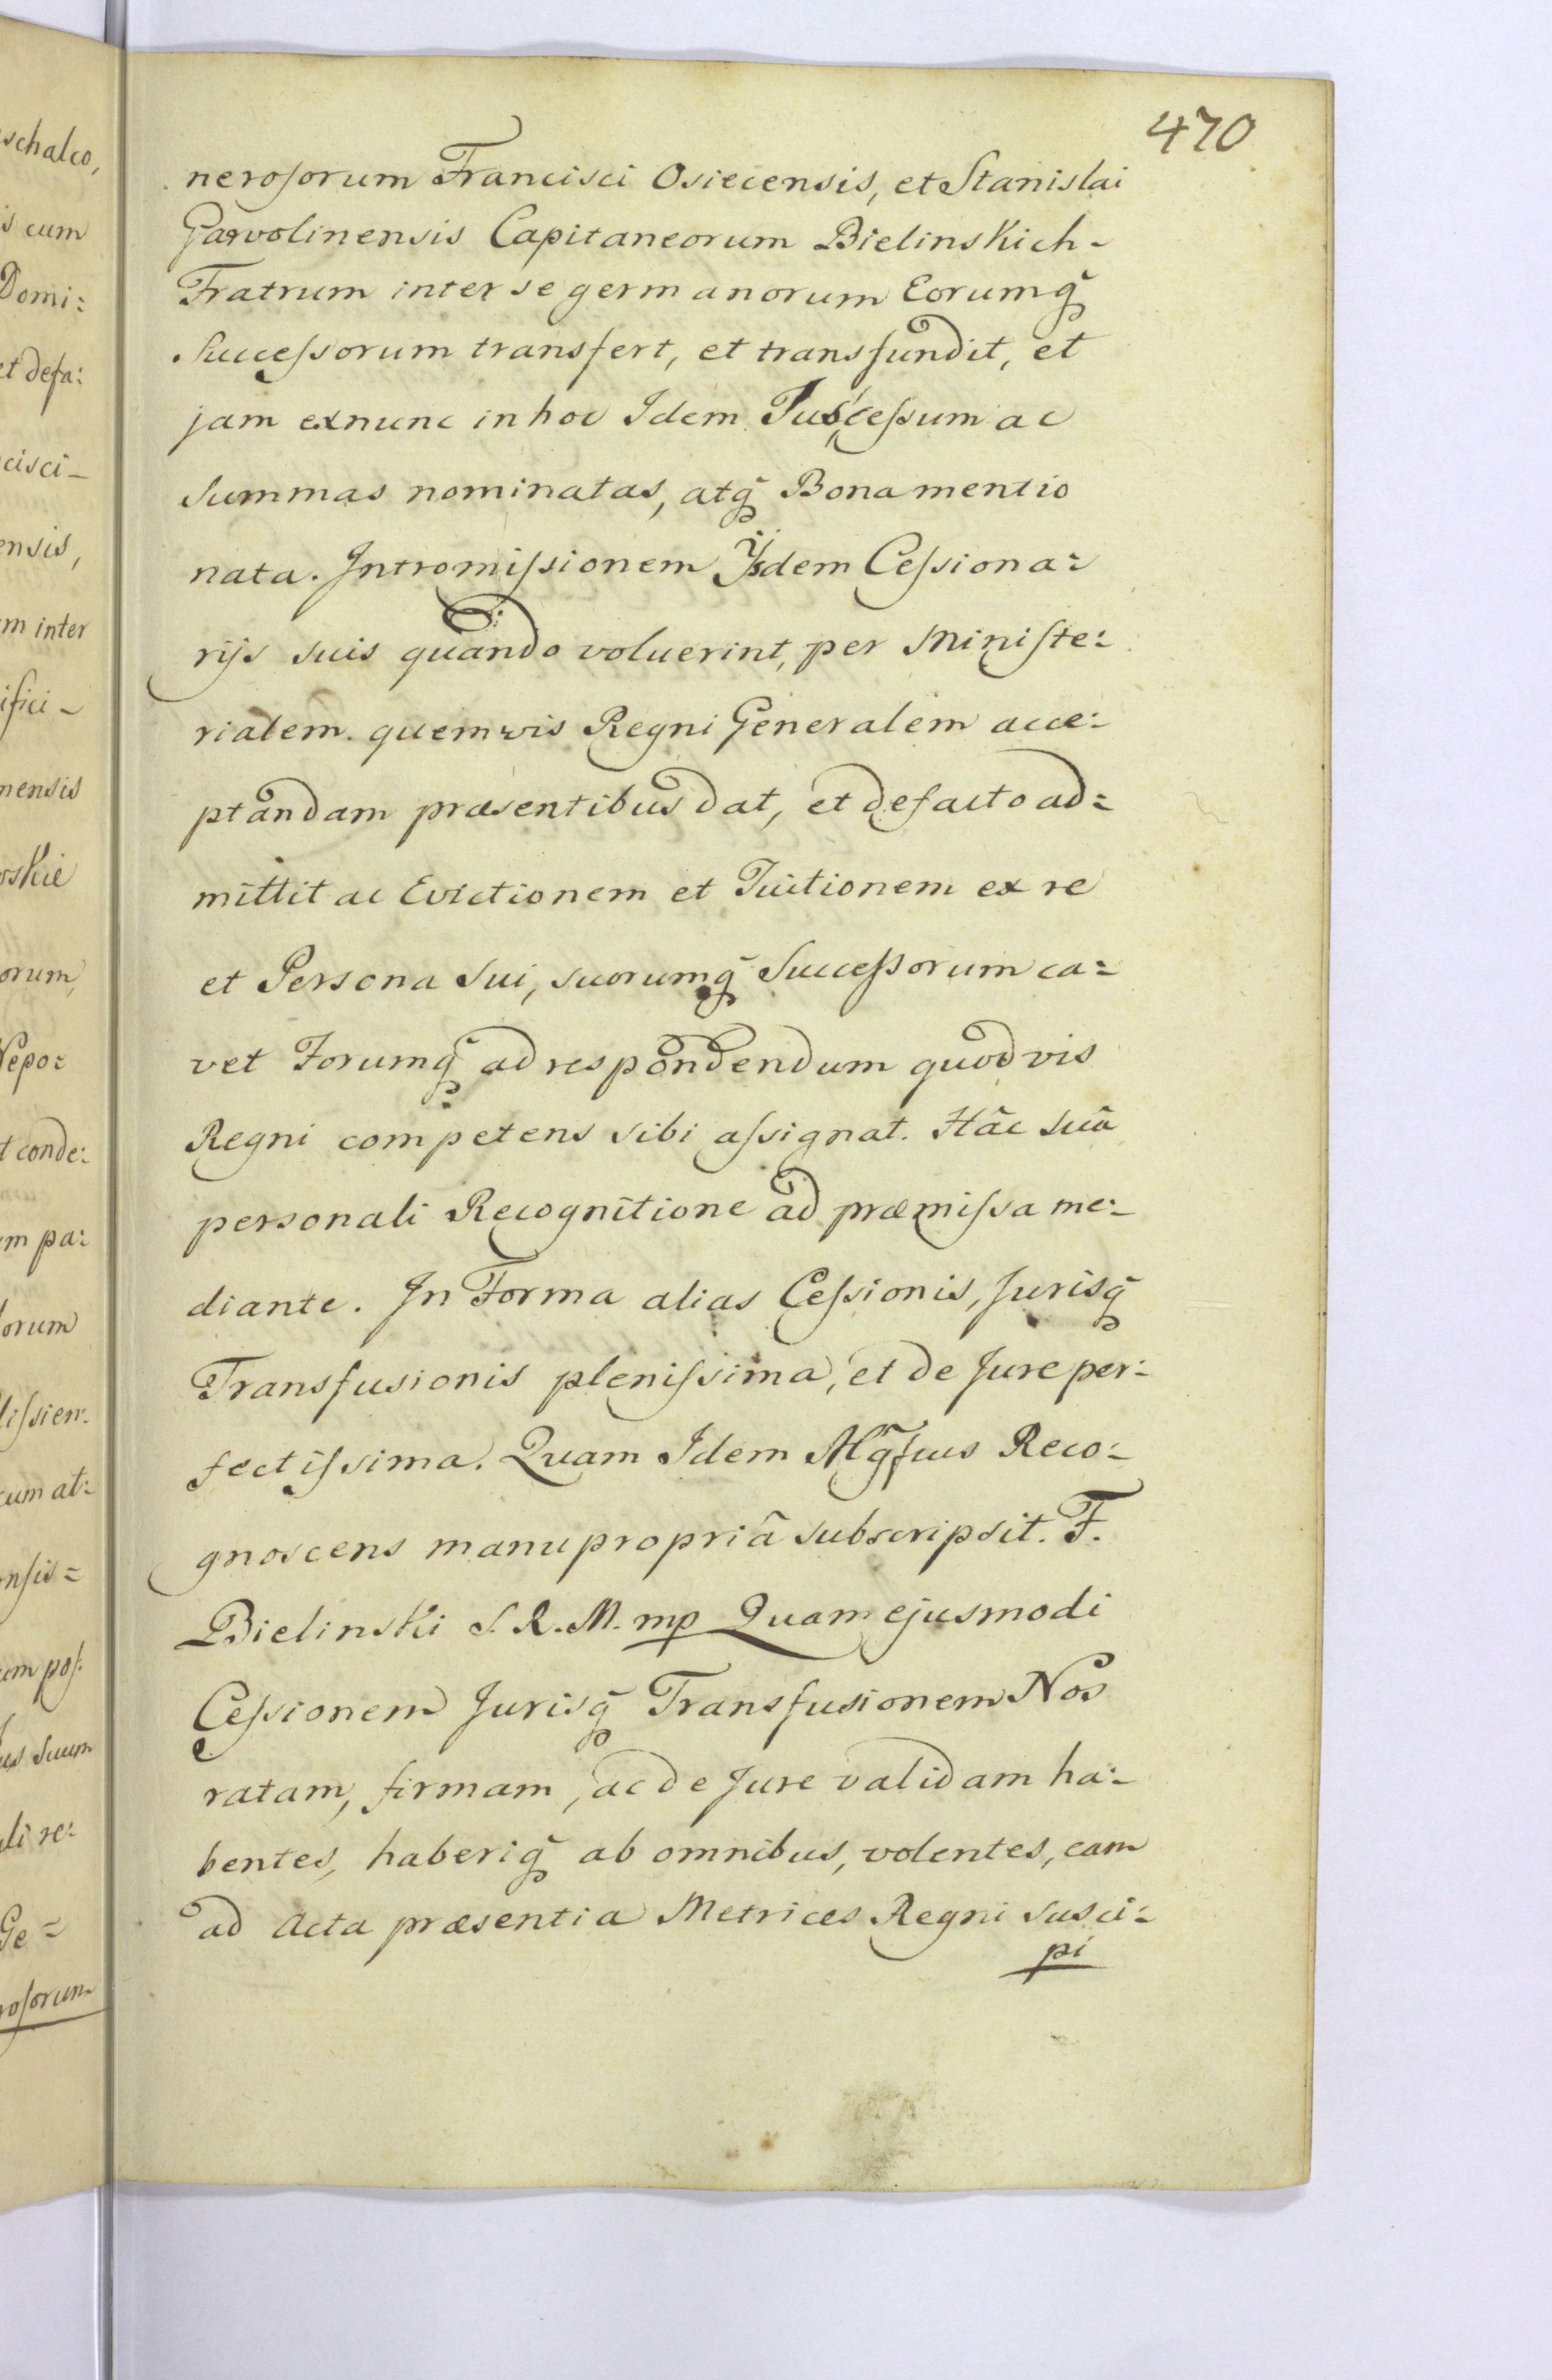 470
schalco,
is cum
Domi:
et defa:
cisci-
ensis,
m inter
ifici-
nensis
oskie
orum,
Nepo:
t conde:
m pa:
orum
lissien:
cum at:
onsis=
em pos:
us suum
ali re:
Ge=
rosorum
nerosorum Francisci Osiecensis, et Stanislai
Garvolinensis Capitaneorum Bielinskich-
Fratrum inter se germanorum Eorumq̃
Successorum transfert, et transfundit, et
jam exnunc in hoc Idem Jus cessum ac
Summas nominatas, atq̃ Bona mentio
nata. Intromissionem Ijsdem Cessiona:
rijs suis quando voluerint, per Ministe:
rialem quemvis Regni Generalem acce:
ptandam præsentibus dat, et defacto ad:
mittit ac Evictionem et Tuitionem ex re
et Persona Sui, suorumq̃ Successorum ca:
vet Forumq̃ ad respondendum quodvis
Regni competens sibi assignat. Hâc suâ
personali Recognitione ad præmissa me:
diante. In Forma alias Cessionis, Jurisq̃
Transfusionis plenissima, et de Jure per:
fectissima. Quam Idem Mg̃fcus Reco:
gnoscens manu propriâ subscripsit. F.
Bielinski S. R. M. mp Quam ejusmodi
Cessionem Jurisq̃ Transfusionem Nos
ratam, firmam, ac de Jure validam ha:
bentes, haberiq̃ ab omnibus, volentes, eam
ad Acta præsentia Metrices Regni susci:
pi